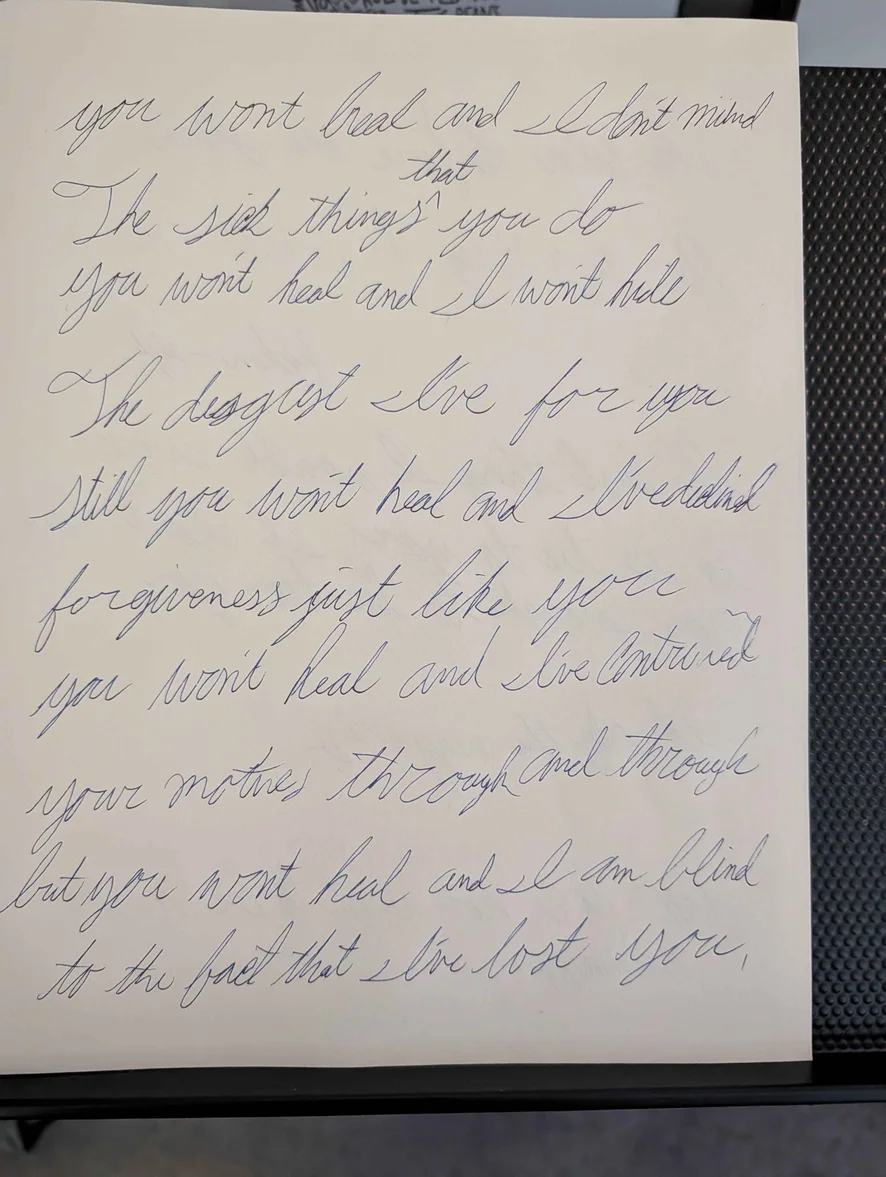 you wont heal and I don't mind
The sick things that you do
you won't heal and I won't hide
The disgust I've for you
still you won't heal and I've declined
forgiveness just like you
you won't heal and I've contrived
your motives through and through
but you wont heal and I am blind
to the fact that I've lost you,